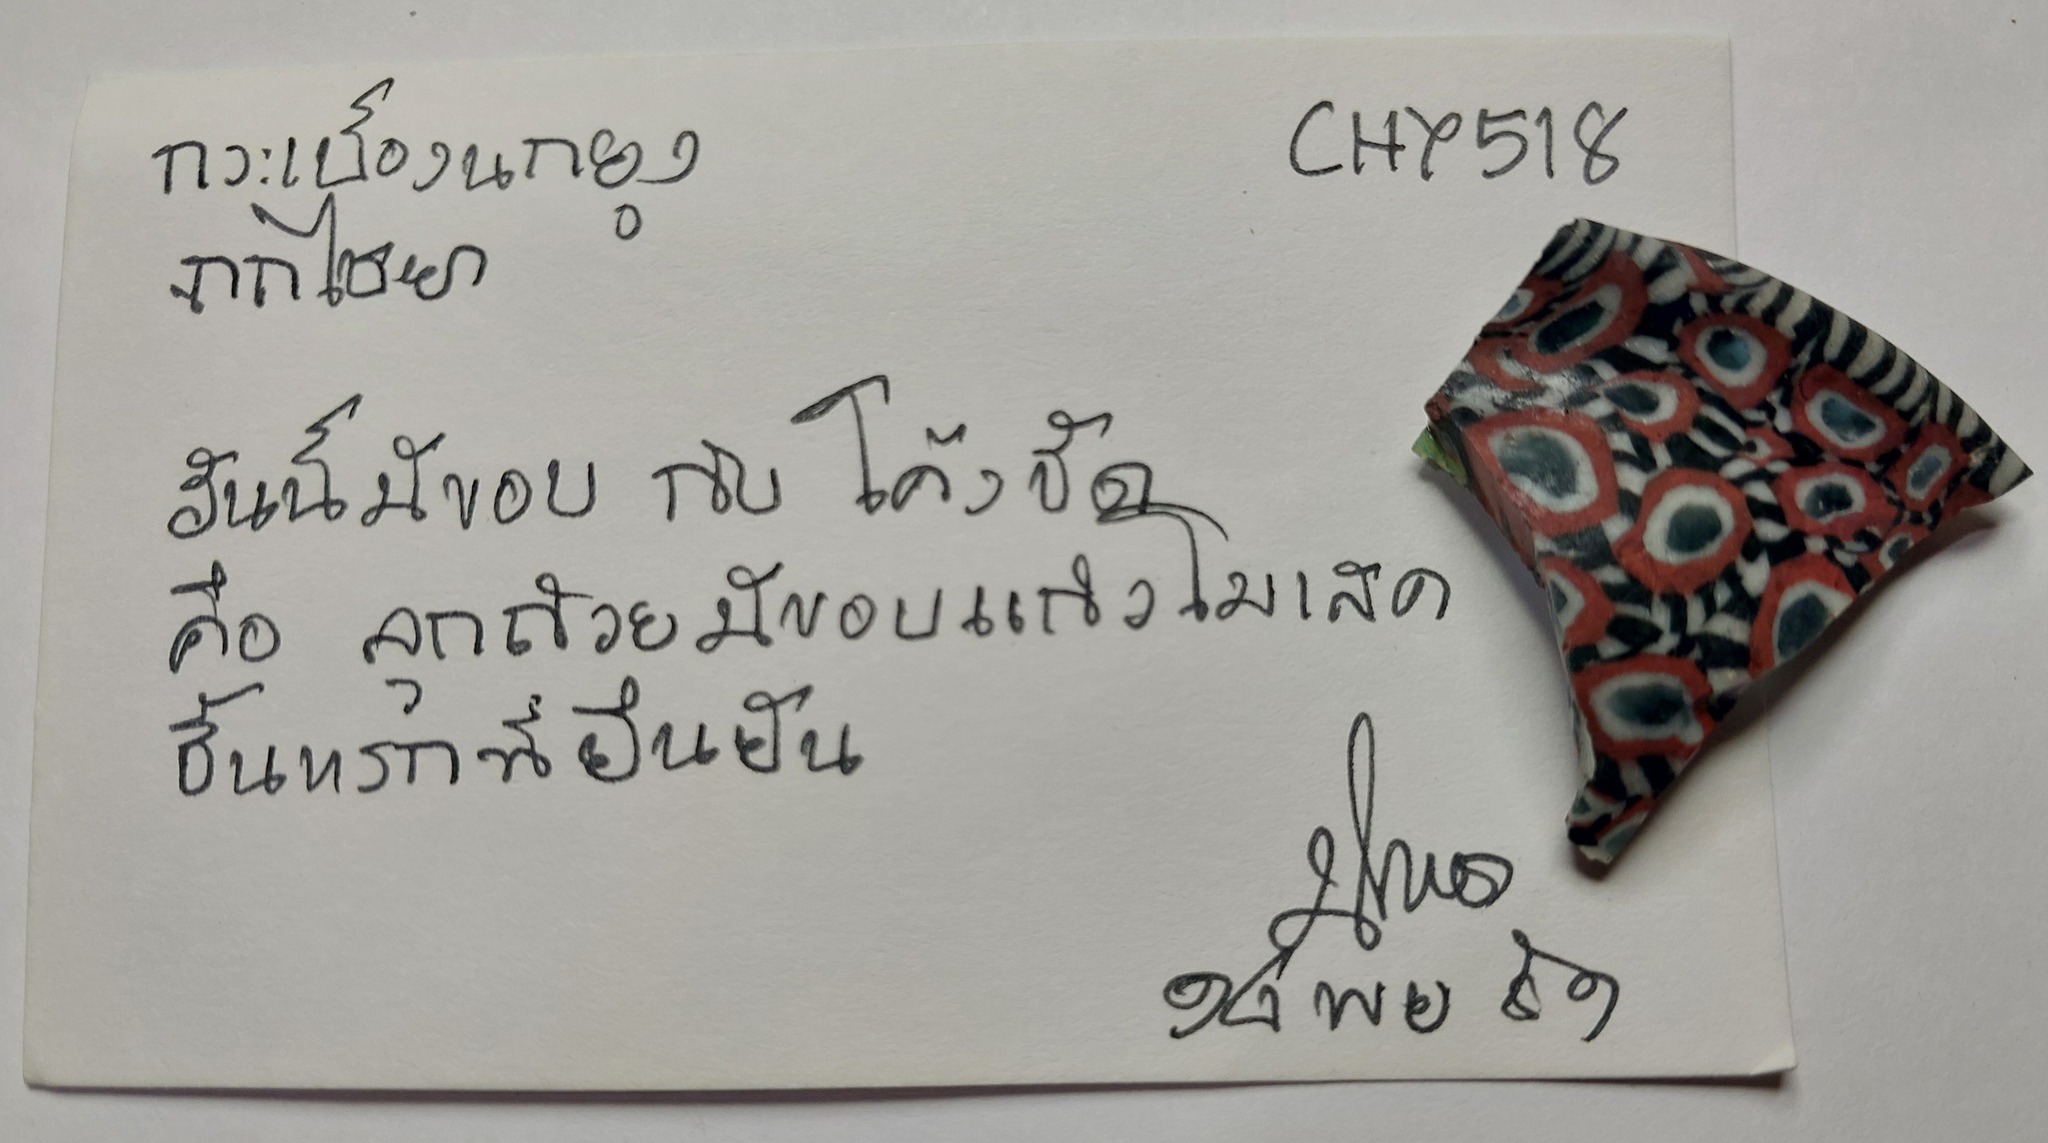 กระเบื้องนกยูง
CHY518
จากไชยา
อันนี้มีขอบ กับ โค้งชัด
คือ ลูกถ้วยมีขอบแก้วโมเสค
ชิ้นแรกที่ยืนยัน
พย ๖๑